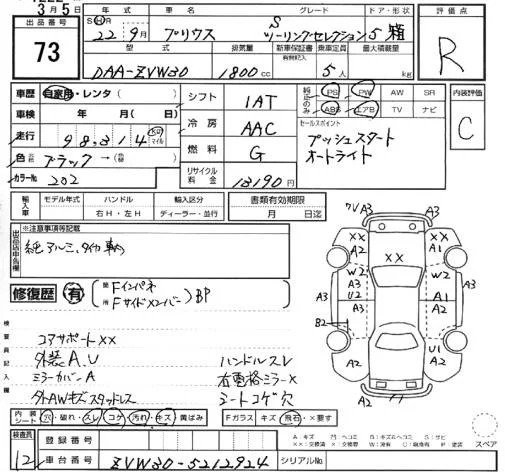 3月5日
出品番号
73
年式
S H R
22 9月
車名
プリウス
グレード
S
ツーリングセレクション
ドア・形状
5 箱
評価点
R
型式
DAA-ZVW30
排気量
1800 cc
新車保証書
有効記入
乗車定員
5人
最大積載量
kg
車歴 自家用・レンタ ( )
車検 年 月( 日)
走行 98,314 マイル
色 ブラック →( )
カラーNo 202
シフト 1AT
冷房 AAC
燃料 G
リサイクル料金 13190円
純正のみ
PS PW AW SR
ABS エアB TV ナビ
内装評価
C
セールスポイント
プッシュスタート
オートライト
輸入車
モデル年式
ハンドル
右H・左H
輸入区分
ディーラー・並行
書類有効期限
月 日迄
出品店申告欄
※注意事項等記載
純アルミ、タイヤ車内
修復歴 有
箇所
Fインパネ
Fサイドメンバー
BP
検査員記入欄
コアサポートXX
外装A.U
ミラーカバーA
外AWキズスタッドレス
ハンドルスレ
右重格ミラーX
シートコゲ穴
7V A3
A3
XX
A2
XX
XX
A1
W2
A3
U2
A3
W2
A1
A2
A3
B2
A2
U1
A2
A3
A2
スペア
内装シート 穴・破れ・スレ・コゲ・汚れ・キズ・黄ばみ
Fガラス キズ・飛石・×要す
検査員
12
登録番号
車台番号 ZVW30-5212924
シリアルNo
A キズ